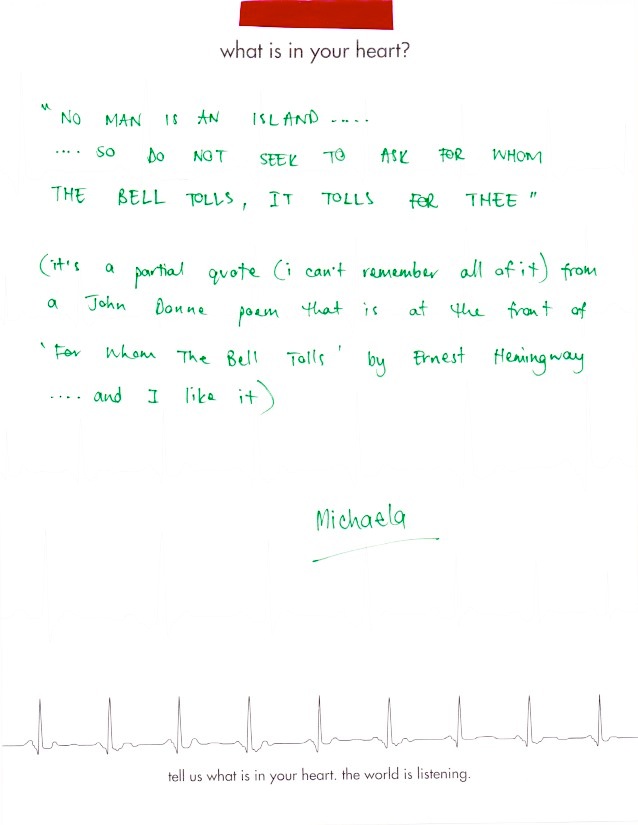 what is in your heart?
"NO MAN IS AN ISLAND .....
.... SO DO NOT SEEK TO ASK FOR WHOM
THE BELL TOLLS, IT TOLLS FOR THEE"
(it's a partial quote (i can't remember all of it) from
a John Donne poem that is at the front of
'For Whom The Bell Tolls' by Ernest Hemingway
.... and I like it)
Michaela
tell us what is in your heart. the world is listening.